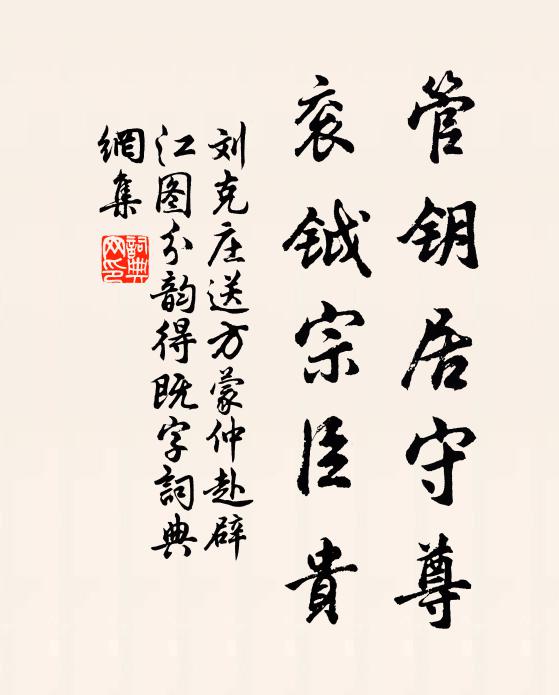 管钥居守尊
衮钺宗臣貴
刘克庄送方蒙仲赴辟
江图分韵得既字詞典
網集
詞典網印